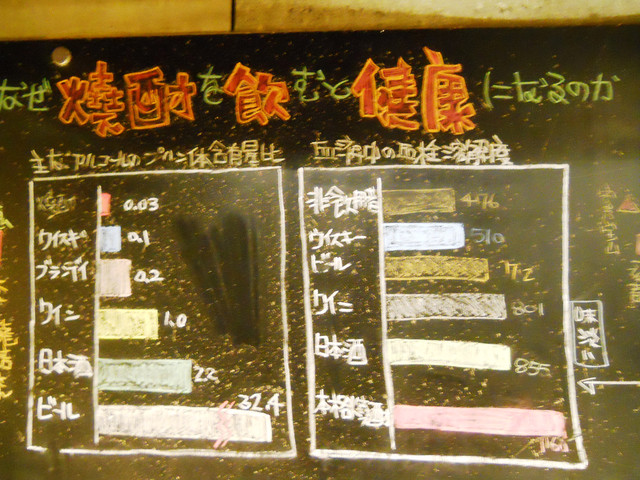 なぜ焼酎を飲むと健康になるのか
主なアルコールのプリン体含有量比
焼酎 0.03
ウイスキー 0.1
ブランデイ 0.2
ワイン 1.0
日本酒 22
ビール 32.4
血液中の血栓溶解度
非飲酒 476
ウイスキー 510
ビール 712
ワイン 801
日本酒 855
本格焼酎